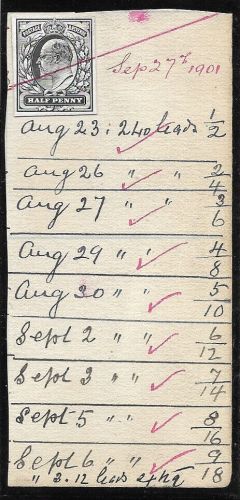 POSTAGE REVENUE
HALF PENNY
Sep 27th 1901
Aug 23 : 240 leads 1/2
Aug 26 " " 2/4
Aug 27 " " 3/6
Aug 29 " " 4/8
Aug 30 " " 5/10
Sept 2 " " 6/12
Sept 3 " " 7/14
Sept 5 " " 8/16
Sept 6 " " 9/18
" 3. 12 leads